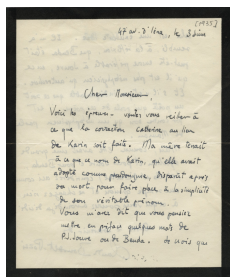 [1938]
47 av. d'Iéna, le 3 juin
Cher Monsieur,
Voici les épreuves. Voulez vous veiller à
ce que la correction Catherine au lieu
de Karin soit faite. Ma mère tenait
à ce que ce nom de Karin, qu'elle avait
adopté comme pseudonyme, disparût après
sa mort, pour faire place à la simplicité
de son véritable prénom.
Vous m'avez dit que vous pensiez
mettre en préface quelques mots de
P.J. Jouve ou de Benda. Je crois que